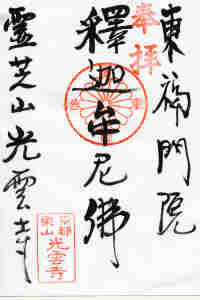 奉拝
東福門院
釋迦牟尼佛
霊芝山光雲寺
京都
光雲寺